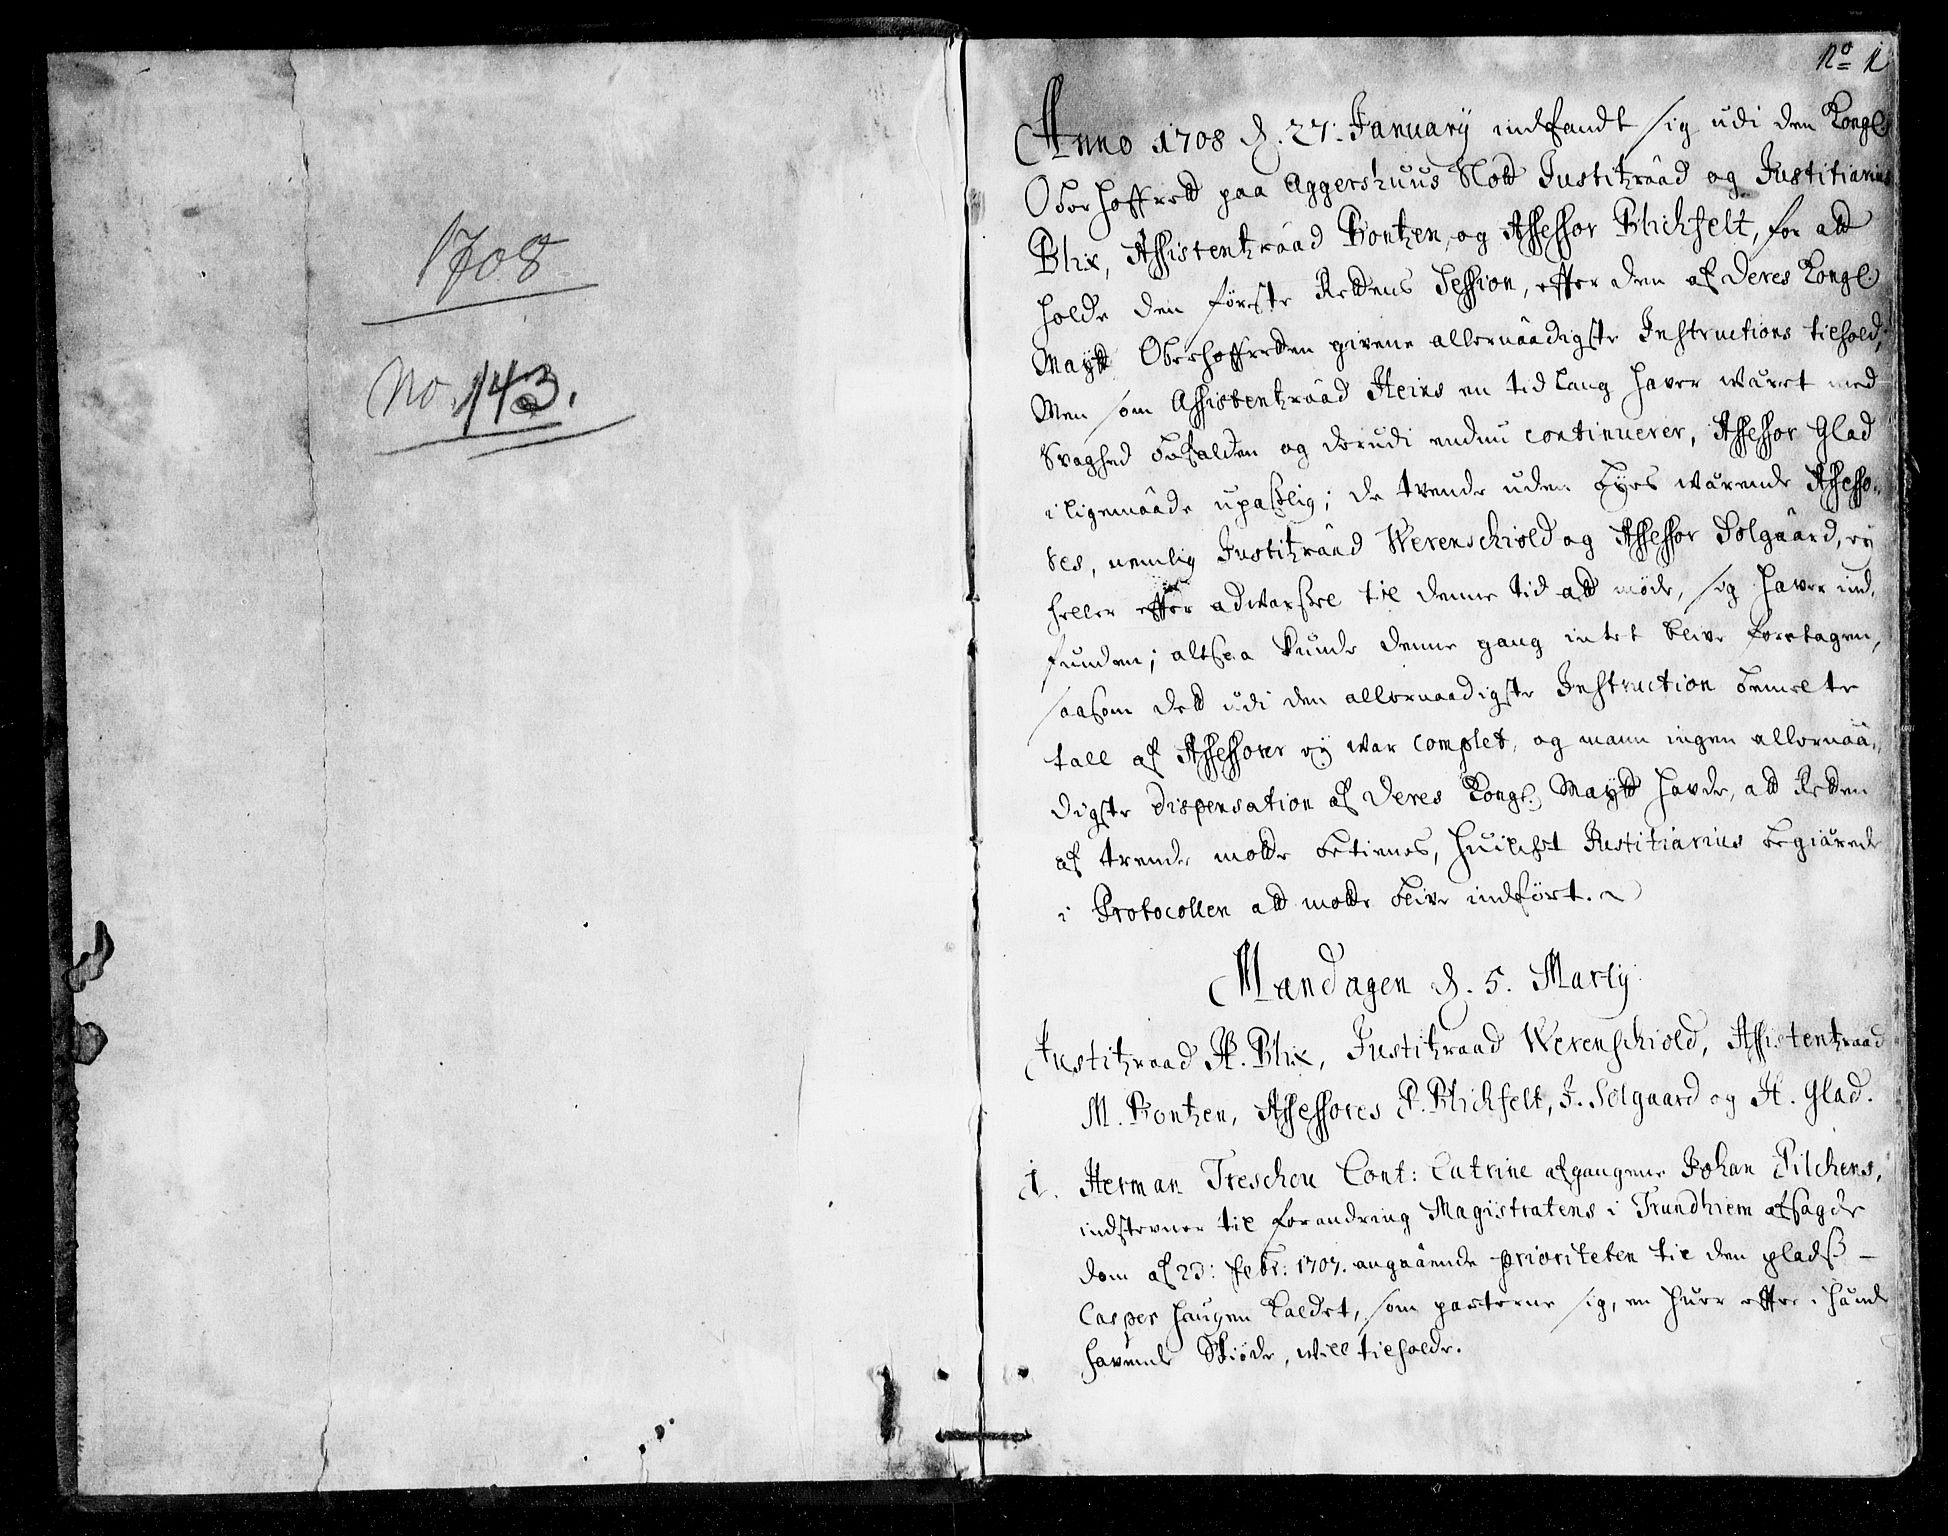 1708
No. 143.
No 1
Anno 1708 d. 27. January indfandt sig udi den Kongl.
Oberhoffrett paa Aggershuus Slott Justitzraad og Justitiarius
Blix, Assistentzraad Bontzen, og Assessor Blichfelt, for att
holde den første Rettens Session, effter den af Deres Kongl.
Maytt Oberhoffretten givene allernaadigste Instructions tilhold,
Men som Assistentzraad Heins en tid lang haver wæret med
Svaghed befalden og derudi endnu continuerer, Assessor Glad
i ligemaade upaslig; de tvende uden Byes wærende Assesso-
res, nemlig Justitzraad Werenschiold og Assessor Solgaard, ey
heller effter adwarsel til denne tid att møde, sig haver ind-
funden; altsaa kunde denne gang intet blive foretagen,
saasom dett udi den allernaadigste Instruction bemelte
tall af Assessorer ey war complet, og mann ingen allernaa-
digste dispensation af Deres Kongl. Maytt havde, att Retten
af trende motte betienes, huilchet Justitiarius begiærede
i Protocollen att motte blive indført.
Mandagen d. 5. Marty
Justitzraad H. Blix, Justitzraad Werenschiold, Assistentzraad
M. Bontzen, Assessores P. Blichfelt, J. Solgaard og H. Glad.
1. Herman Treschou Cont: Catrine afgangene Johan Pilchens,
indstevner til forandring Magistratens i Trundhiem afsagde
dom af 23: Febr: 1707. angaaende prioriteten til den plads
Casper haugen kaldet, som parterne sig, en huer effter i hænde
havende Skiøde, will tilholde.